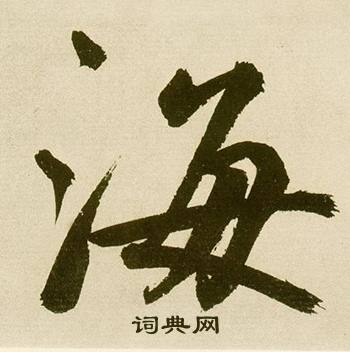 海
词典网